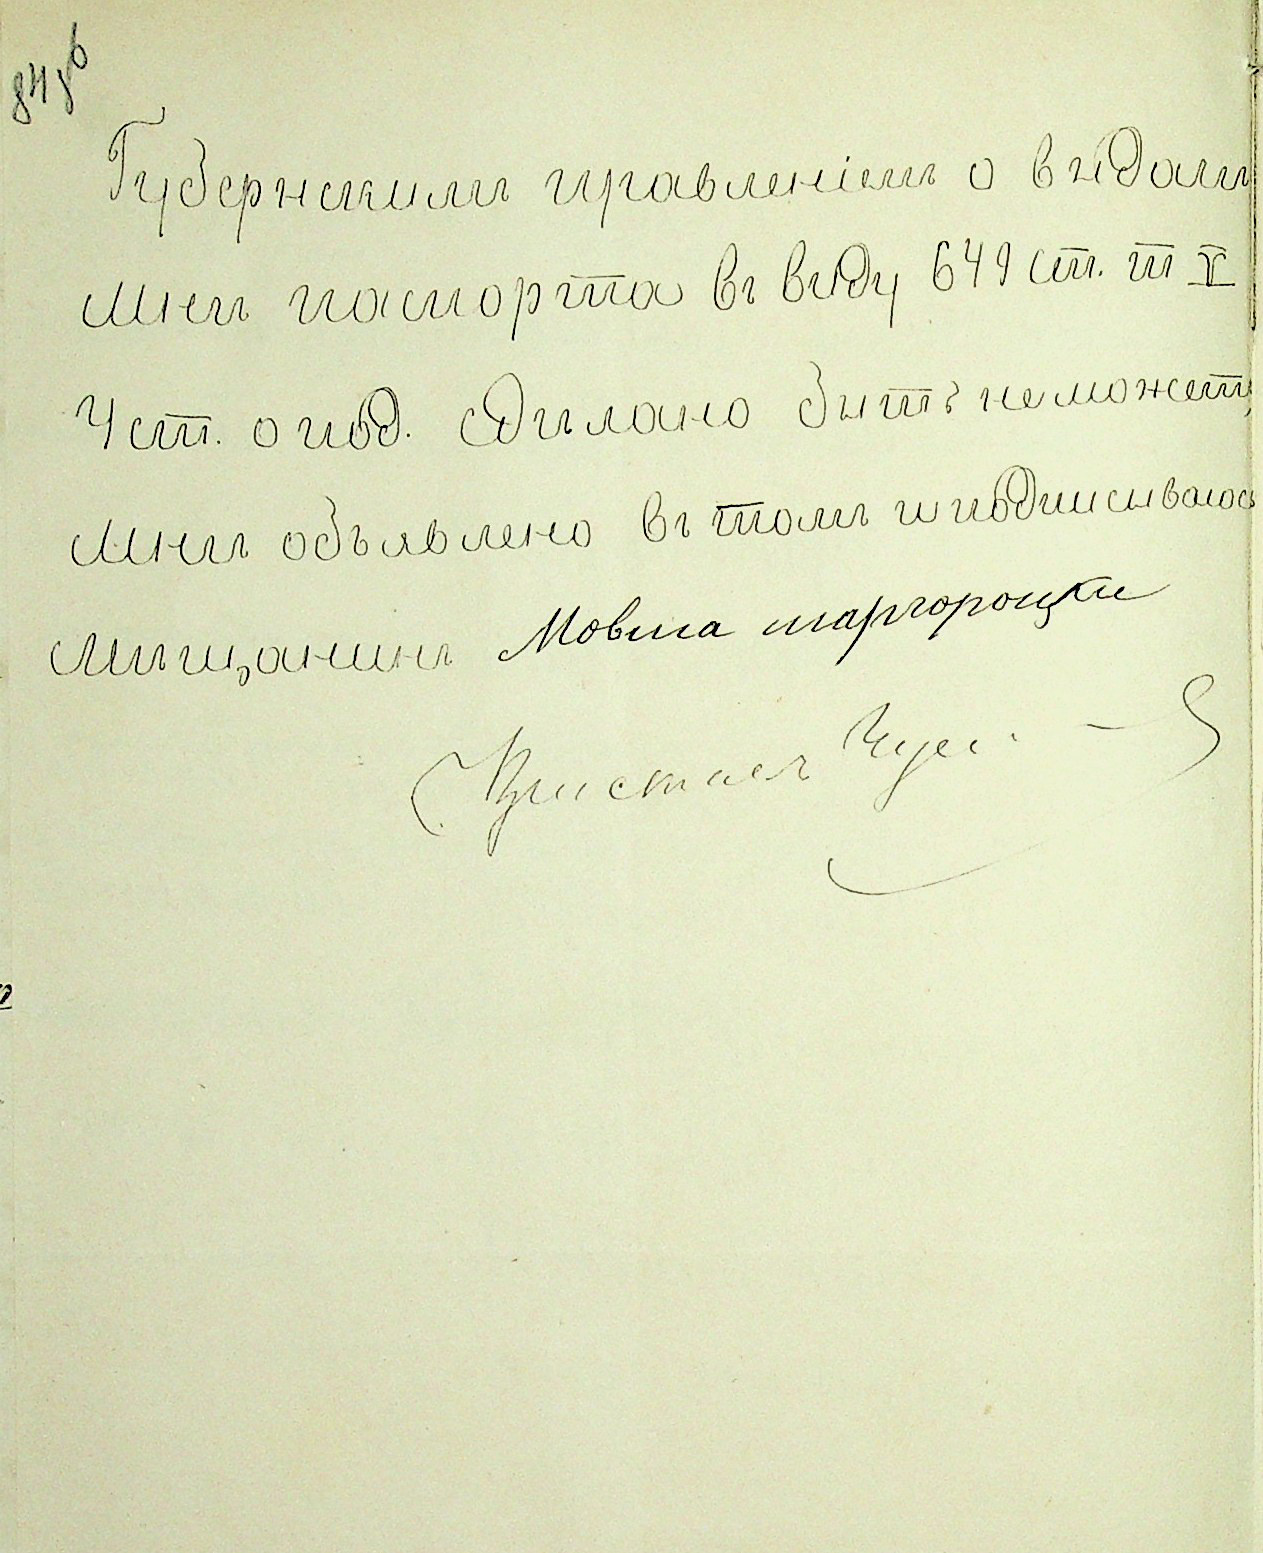 84 об
Губернскимъ правленіемъ о выдачи
мнѣ паспорта въ виду 649 ст. т X
Уст. о под. сдѣлано быть не можетъ
мнѣ объявлено въ томъ и подписываюсь
мѣщанинъ Мовша шаргороцки
Приставъ